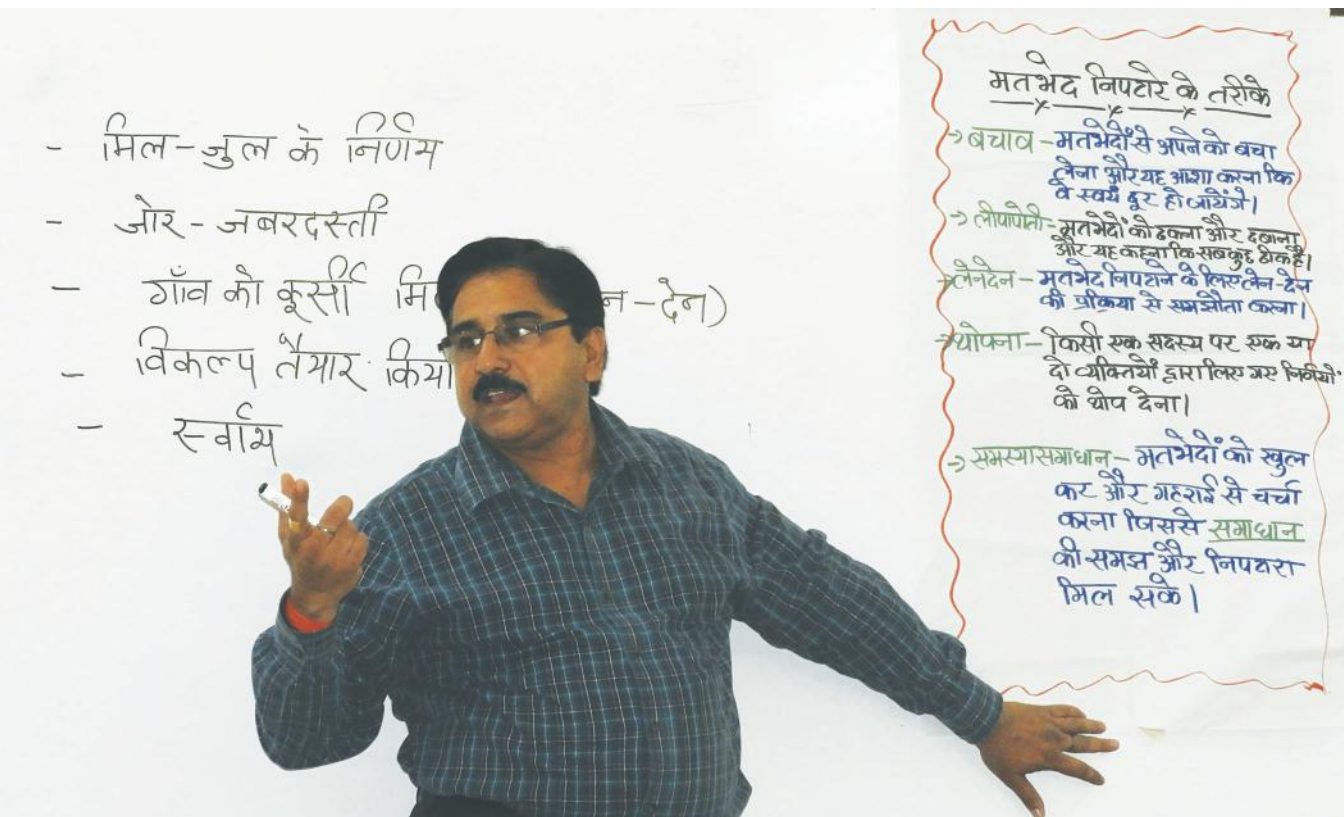 - मिल-जुल के निर्णय
- जोर-जबरदस्ती
- गाँव को कूर्सी
न-देन)
- विकल्प तैयार किया
- स्वार्थ
मतभेद निपटारे के तरीके
→ बचाव - मतभेदों से अपने को बचा
लेना और यह आशा करना कि
वे स्वयं दूर हो जायेंगे।
→ लीपापोती - मतभेदों को ढकना और दबाना
और यह कहना कि सबकुछ ठीक है।
→ लेनदेन - मतभेद निपटाने के लिए लेन-देन
की प्रक्रिया से समझौता करना।
→ थोपना - किसी एक सदस्य पर एक या
दो व्यक्तियों द्वारा लिए गए निर्णयों
को थोप देना।
→ समस्या समाधान - मतभेदों को खुल
कर और गहराई से चर्चा
करना जिससे समाधान
की समझ और निपटारा
मिल सके।